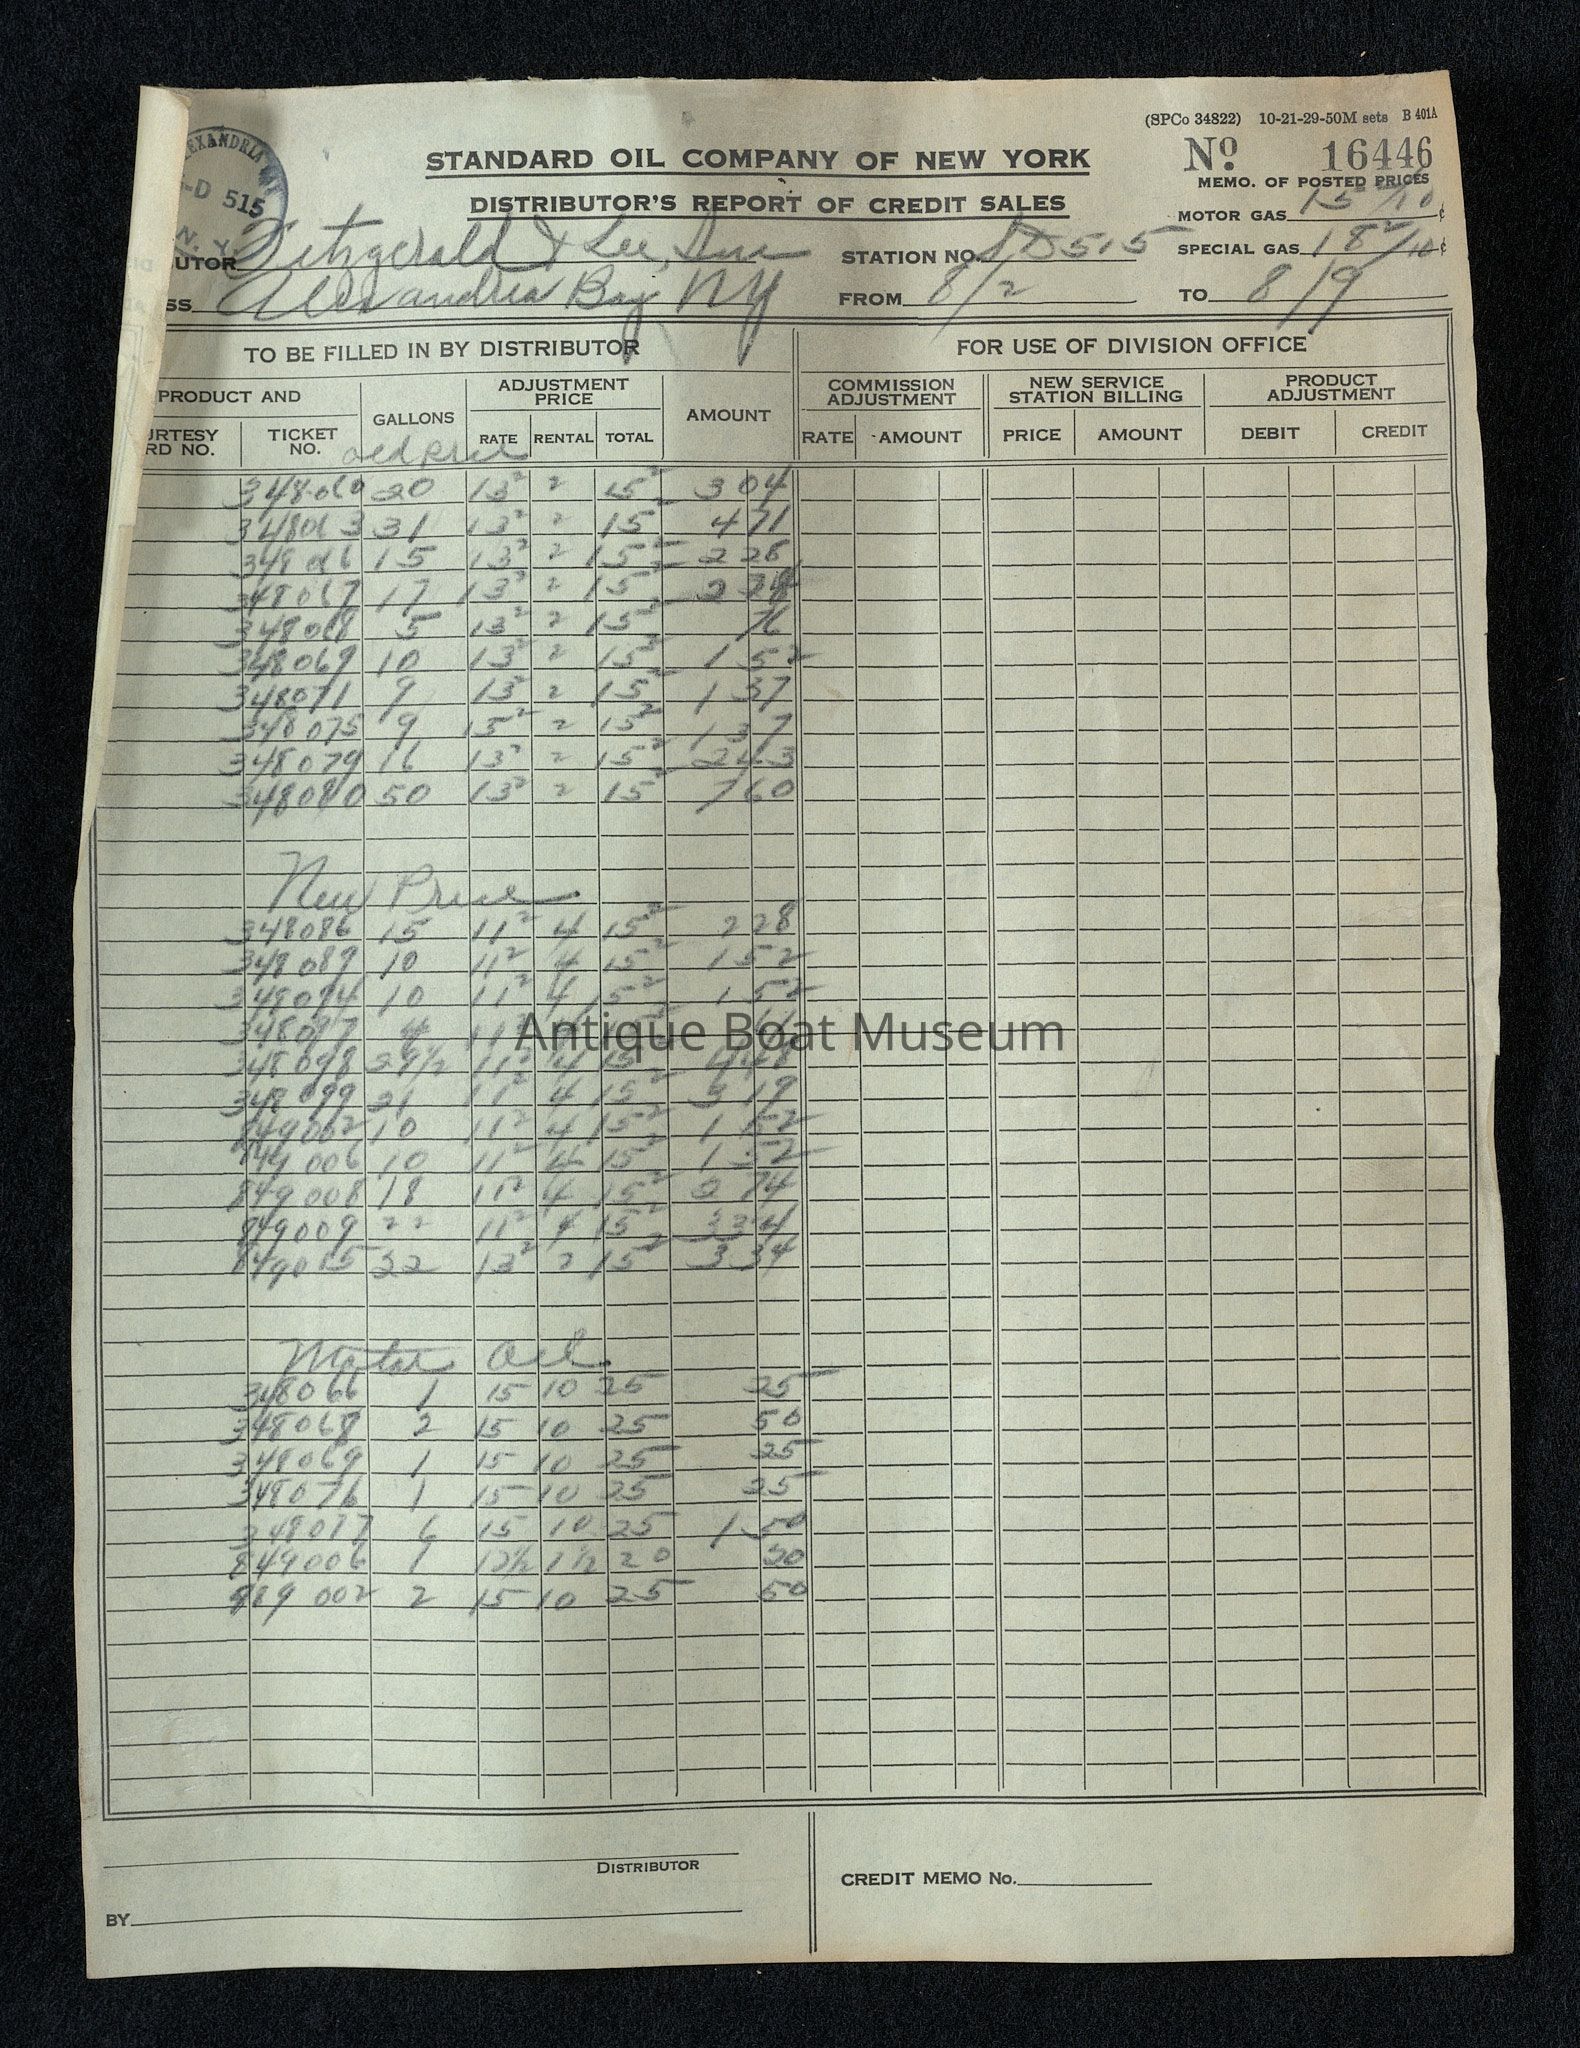 (SPCo 34822) 10-21-29-50M sets B 401A
STANDARD OIL COMPANY OF NEW YORK
No 16446
DISTRIBUTOR'S REPORT OF CREDIT SALES
MEMO. OF POSTED PRICES
MOTOR GAS 15 2/10 ¢
EXANDRIA
-D 515
N. Y.
UTOR Fitzgerald & Lee, Inc
STATION NO. SD515
SPECIAL GAS 18 2/10 ¢
SS Alexandria Bay NY
FROM 8/2 TO 8/9
TO BE FILLED IN BY DISTRIBUTOR
FOR USE OF DIVISION OFFICE
PRODUCT AND
GALLONS
ADJUSTMENT PRICE
AMOUNT
COMMISSION ADJUSTMENT
NEW SERVICE STATION BILLING
PRODUCT ADJUSTMENT
URTESY RD NO. TICKET NO. RATE RENTAL TOTAL RATE AMOUNT PRICE AMOUNT DEBIT CREDIT
old Price
348060 20 13² 2 15² 3 04
348063 31 13² 2 15² 4 71
348066 15 13² 2 15² 2 28
348067 17 13² 2 15²
348068 5 13² 2 15² 76
348069 10 13² 2 15² 1 52
348071 9 13² 2 15² 1 37
348075 9 15² 2 15² 1 37
348079 16 13² 2 15² 2 43
348080 50 13² 2 15² 7 60
New Price
348086 15 11² 4 15² 2 28
348089 10 11² 4 15² 1 52
348094 10 11² 4 15² 1 52
348097 4 11² 4 15² 61
348098 29½ 11² 4 15² 4 48
348099 21 11² 4 15² 3 19
849002 10 11² 4 15² 1 52
849006 10 11² 4 15² 1 52
849008 18 11² 4 15² 2 74
849009 22 11² 4 15² 3 34
849015 22 13² 2 15² 3 34
Motor Oil
348066 1 15 10 25 25
348068 2 15 10 25 50
348069 1 15 10 25 25
348076 1 15 10 25 25
348077 6 15 10 25 1 50
849006 1 20
002 2 15 10 25 50
DISTRIBUTOR
CREDIT MEMO No.
BY
Antique Boat Museum